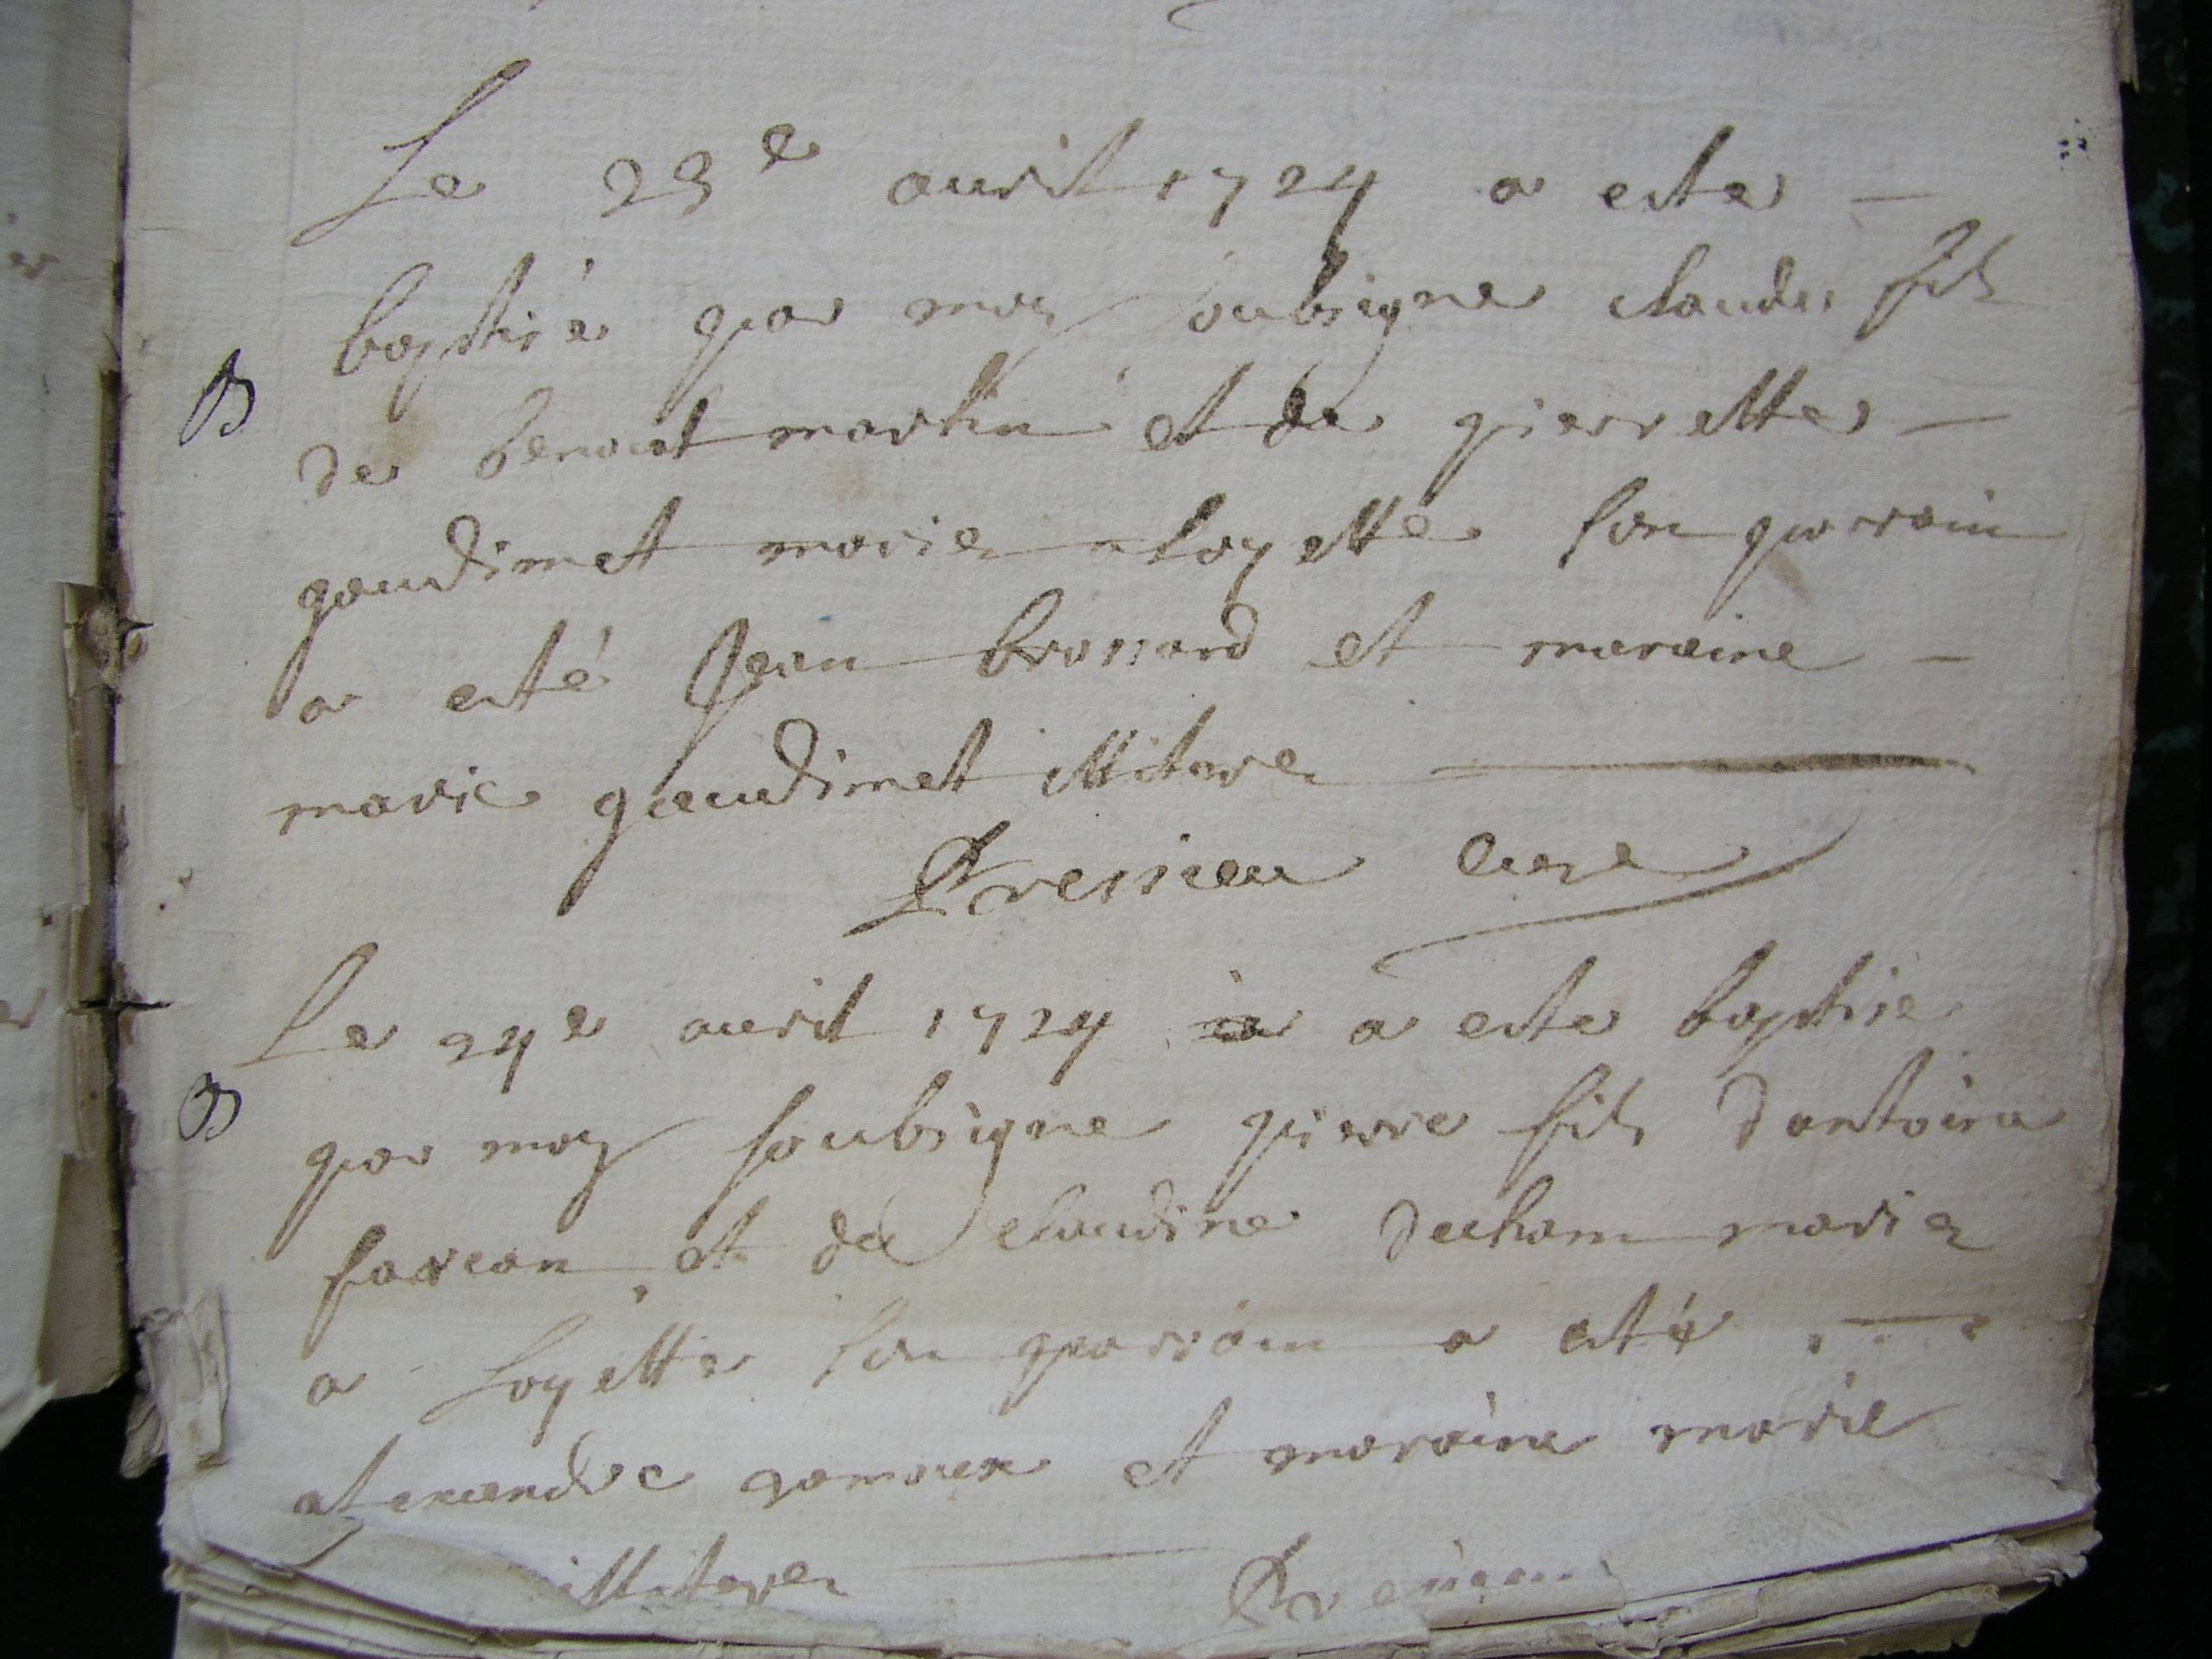 Le 23e avril 1724 a este
baptisé par moy soubsigne claude fils
B
de benoist martin et de pierrette
gaudimet mariez a loyette son parrain
a esté Jean brossard et maraine
marie gaudimet illiterez
Dressieu cure
Le 24e avril 1724 a este baptise
B
par moy soubsigne pierre fils dantoine
et de claudine decham mariez
a Loyette son parrain a esté
et maraine marie
illiterez Dressieu